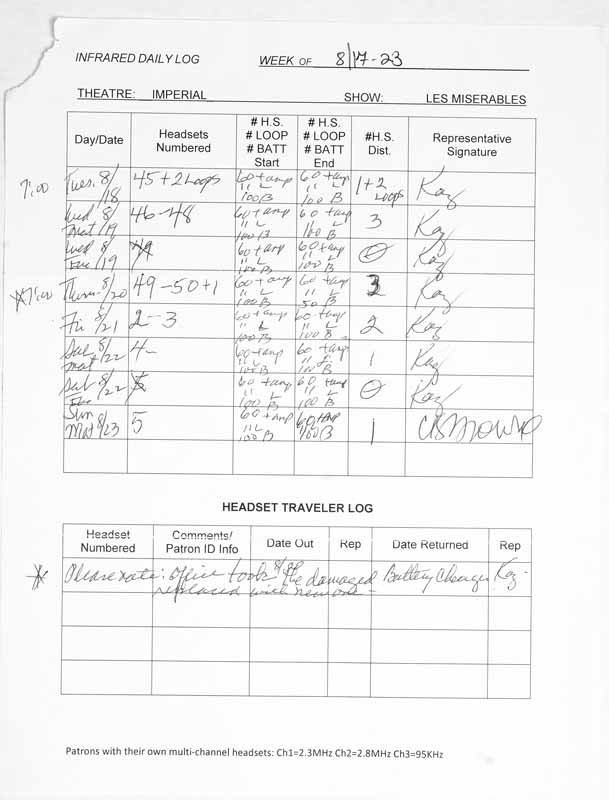 INFRARED DAILY LOG WEEK OF 8/17-23
THEATRE: IMPERIAL SHOW: LES MISERABLES
Day/Date Headsets Numbered # H.S. # LOOP # BATT Start # H.S. # LOOP # BATT End #H.S. Dist. Representative Signature
7:00 Tues. 8/18 45+2 Loops 60+amp 11 L 100 B 60+amp 11 L 100 B 1+2 Loops Kaz
Wed 8/19 mat 46-48 60+amp 11 L 100 B 60+amp 11 L 100 B 3 Kaz
Wed 8/19 Eve 60+amp 11 L 100 B 60+amp 11 L 100 B 0 Kaz
7:00 Thurs. 8/20 49-50+1 60+amp 11 L 100 B 60+amp 11 L 50 B 3 Kaz
Fri 8/21 2-3 60+amp 11 L 100 B 60+amp 11 L 100 B 2 Kaz
Sat. 8/22 mat 4- 60+amp 11 L 100 B 60+amp 11 L 100 B 1 Kaz
Sat 8/22 Eve 60+amp 11 L 100 B 60+amp 11 L 100 B 0 Kaz
Sun Mat 8/23 5 60+amp 11 L 100 B 60+amp 100 B 1
HEADSET TRAVELER LOG
Headset Numbered Comments/ Patron ID Info Date Out Rep Date Returned Rep
Please note: Office took the damaged Battery Charger Kaz
replaced with new one -
Patrons with their own multi-channel headsets: Ch1=2.3MHz Ch2=2.8MHz Ch3=95KHz